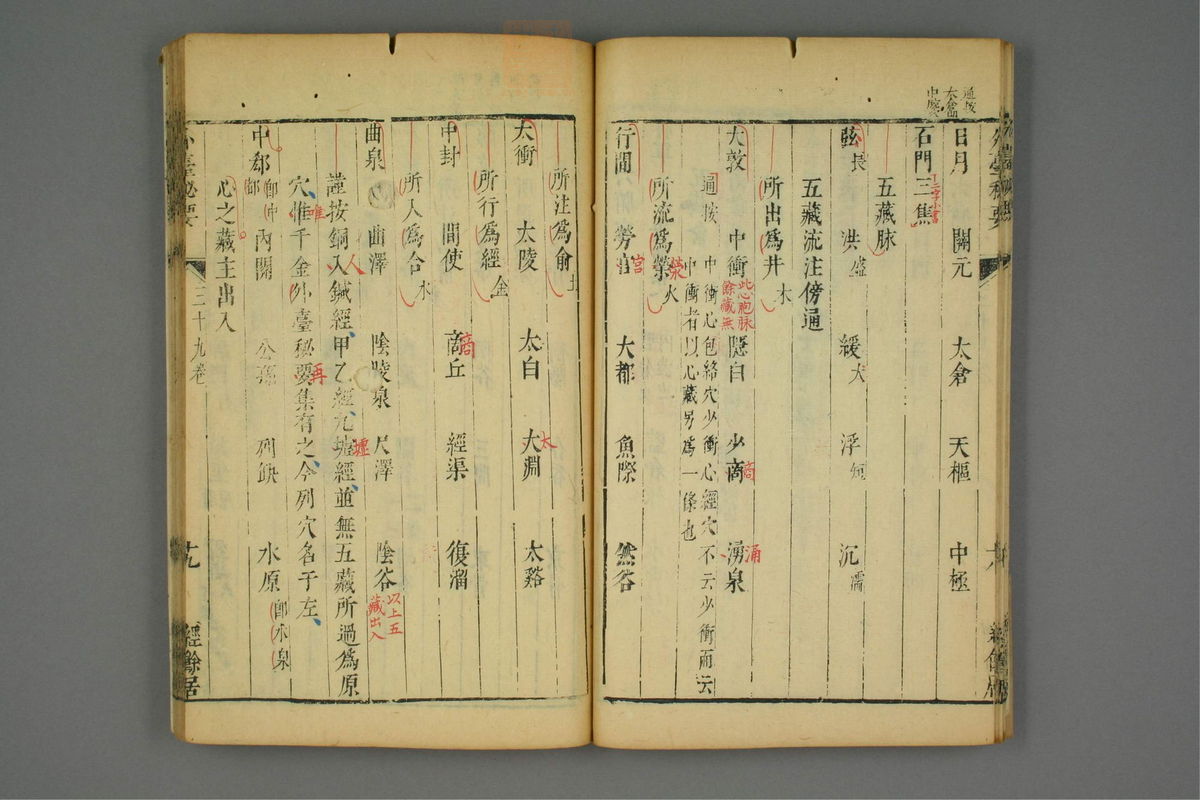 通按
太倉即
中脘
日月　關元　太倉　天樞　中極
石門三焦
五藏脉
弦長　洪盛　緩大　浮短　沉濡
五藏流注傍通
所出爲井木
大敦　中衝　隱白　少商　湧泉
通按中衝心包絡穴少衝心經穴不云少衝而云
中衝者以心藏另爲一條也
此心胞脉
餘藏無
商
涌
所流爲滎火
滎
行間　勞宮　大都　魚際　然谷
宮
所注爲俞土
太衝　太陵　太白　大淵　太谿
太
所行爲經金
中封　間使　商丘　經渠　復溜
商
所入爲合水
曲泉　曲澤　陰陵泉　尺澤　陰谷
以上五
藏出入
謹按銅人鍼經、甲乙經、九墟經、並無五藏所過爲原
人
墟
穴、惟千金外臺秘要集有之、今列穴名于左、
唯
再
中郄即中郄　內關　公孫　列缺　水原即水泉
心之藏主出入
外臺秘要
三十九卷
十九
經餘居